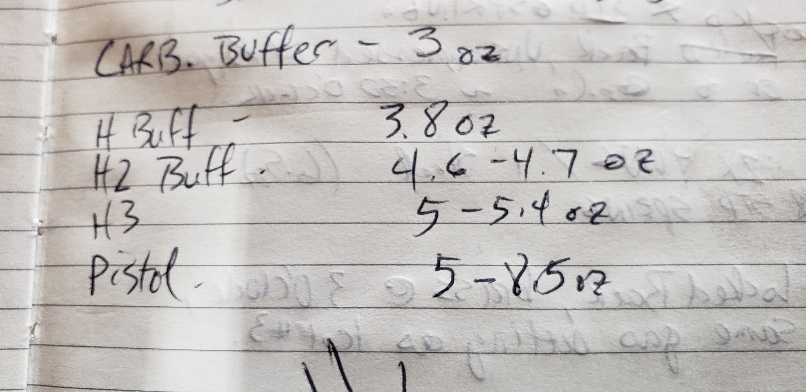 CARB. Buffer - 3 oz
H Buff - 3.8 oz
H2 Buff. 4.6 - 4.7 oz
H3 5 - 5.4 oz
Pistol. 5 - 8.5 oz